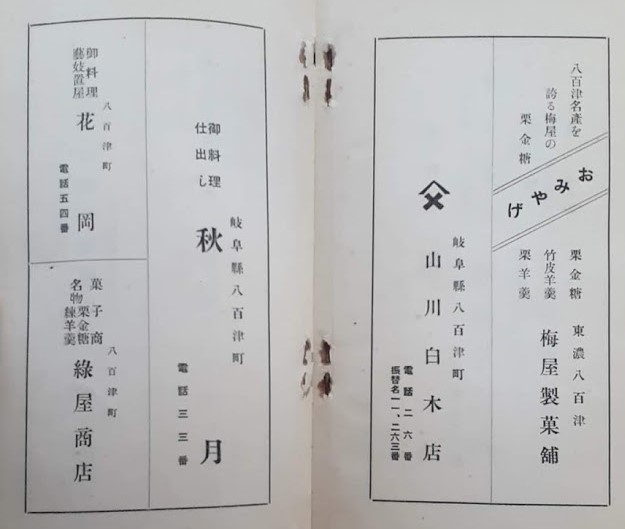 八百津名產を
誇る梅屋の
栗金糖
おみやげ
栗金糖
竹皮羊羹
栗羊羹
東濃八百津
梅屋製菓舗
岐阜縣八百津町
山川白木店
電話二六番
振替名一一、二六三番
岐阜縣八百津町
御料理
仕出し
秋月
電話三三番
御料理
藝妓置屋
八百津町
花岡
電話五四番
菓子商
名物栗金糖
練羊羹
八百津町
綠屋商店